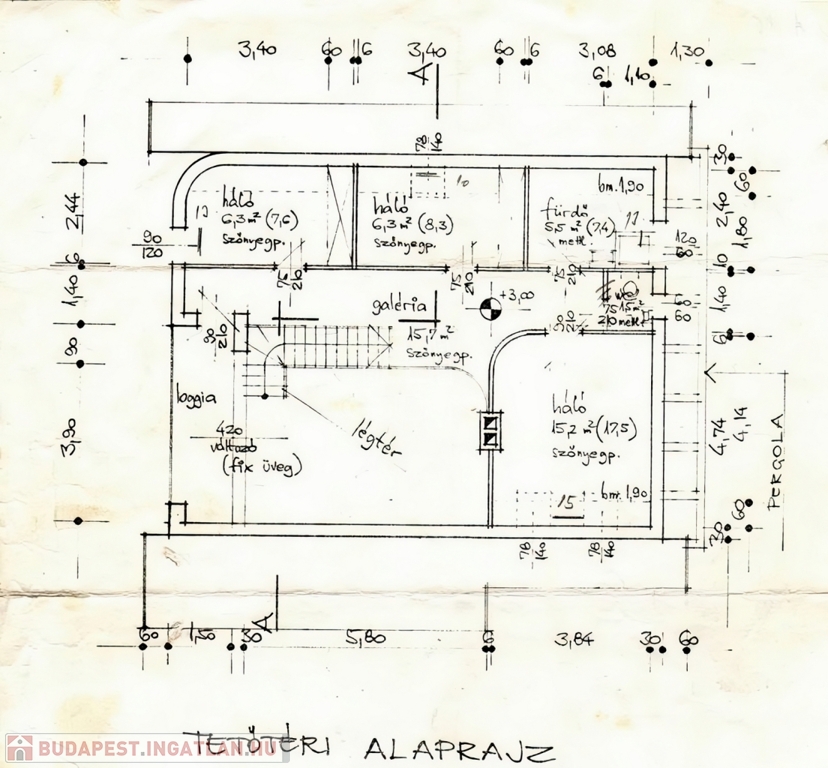 3,40 60 6 3,40 60 6 3,08 1,30
6 1,10
A
78
140
30
60
2,44
6
1,40
90
3,90
háló
6,3 m² (7,6)
szőnyegp.
háló
6,3 m² (8,3)
szőnyegp.
bm. 1,90
fürdő
5,5 m² (7,4)
mettl.
90
120
75
210
75
210
75
210
120
60
2,40
1,80
10
1,40
6
galéria
+3,00
15,7 m²
szőnyegp.
90
210
90
210
WC
1,5 m²
75
210 mettl.
60
60
loggia
légtér
420
változó
(fix üveg)
háló
15,2 m² (17,5)
szőnyegp.
bm. 1,90
15
4,74
4,14
60
30
PERGOLA
78
140
78
140
A
60 1,50 30 5,80 6 3,84 30 60
TETŐTÉRI ALAPRAJZ
BUDAPEST.INGATLAN.HU